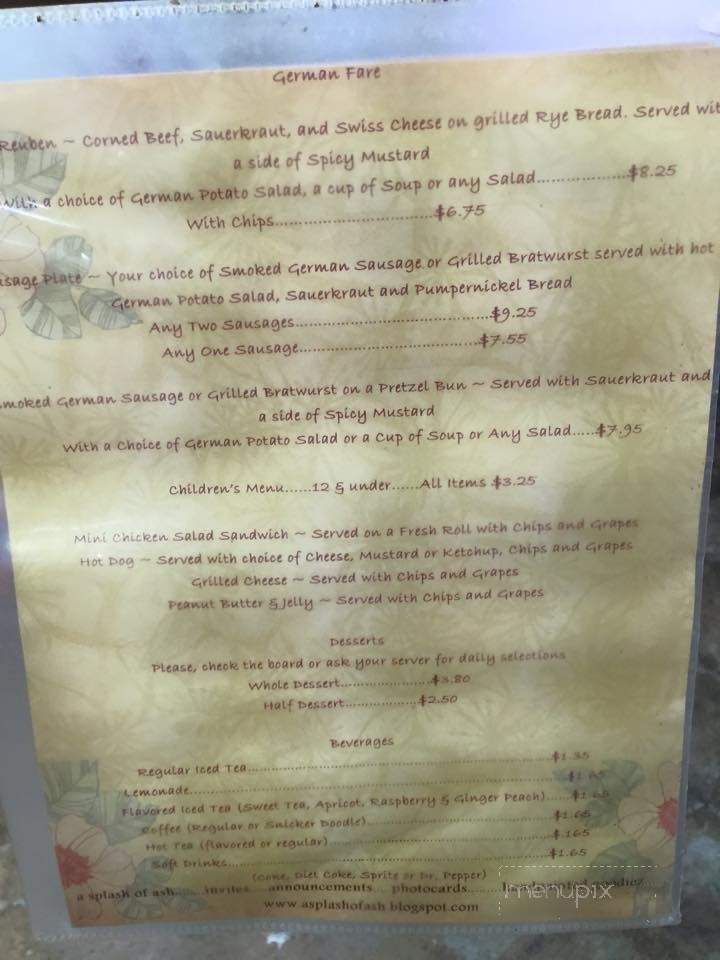 German Fare
Reuben ~ Corned Beef, Sauerkraut, and Swiss Cheese on grilled Rye Bread. Served wit
a side of Spicy Mustard
With a choice of German Potato Salad, a cup of Soup or any Salad..................$8.25
With Chips................................$6.75
usage Plate ~ Your choice of Smoked German Sausage or Grilled Bratwurst served with hot
German Potato Salad, Sauerkraut and Pumpernickel Bread
Any Two Sausages.......................................$9.25
Any One Sausage....................................$7.55
moked German Sausage or Grilled Bratwurst on a Pretzel Bun ~ Served with Sauerkraut and
a side of Spicy Mustard
With a Choice of German Potato Salad or a Cup of Soup or Any Salad.....$7.95
Children's Menu......12 & under......All Items $3.25
Mini Chicken Salad Sandwich ~ Served on a Fresh Roll with Chips and Grapes
Hot Dog ~ Served with choice of Cheese, Mustard or Ketchup, Chips and Grapes
Grilled Cheese ~ Served with Chips and Grapes
Peanut Butter & Jelly ~ Served with Chips and Grapes
Desserts
Please, check the board or ask your server for daily selections
Whole Dessert...................$3.80
Half Dessert...............$2.50
Beverages
Regular Iced Tea..............................................................$1.35
Lemonade..........................................................................
Flavored Iced Tea (Sweet Tea, Apricot, Raspberry & Ginger Peach).....
Coffee (Regular or Snicker Doodle)......................................$1.65
Hot Tea (flavored or regular)..............................................$.165
Soft Drinks.................................................................$1.65
(Coke, Diet Coke, Sprite or Dr. Pepper)
a splash of ash..... invites... announcements... photocards.......
www.asplashofash.blogspot.com
menupix